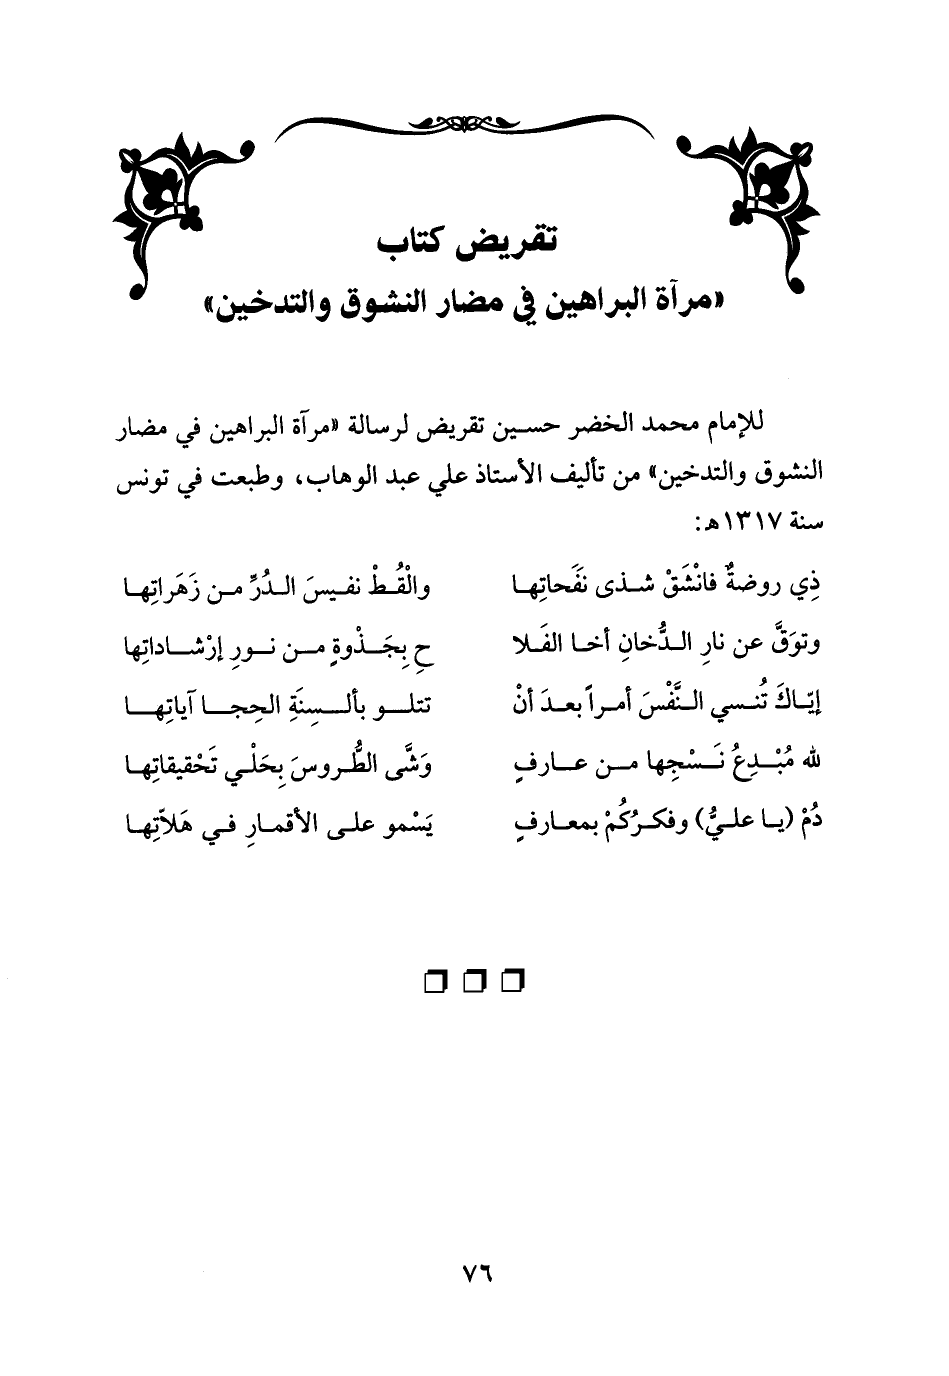 تقريض كتاب
«مرآة البراهين في مضار النشوق والتدخين»
للإمام محمد الخضر حسين تقريض لرسالة «مرآة البراهين في مضار
النشوق والتدخين» من تأليف الأستاذ علي عبد الوهاب، وطبعت في تونس
سنة ١٣١٧هـ:
ذِي روضةٌ فانْشَقْ شذى نَفَحاتِها والْقُطْ نفيسَ الدُرِّ من زَهَراتِها
وتوَقَّ عن نارِ الدُّخانِ أخا الفَلا حِ بِجَذْوةٍ من نورِ إرْشاداتِها
إيّاكَ تُنسي النَّفْسَ أمراً بعدَ أنْ تتلو بألسِنَةِ الحِجا آياتِها
لله مُبْدِعُ نَسْجِها من عارفٍ وَشَّى الطُّروسَ بِحَلْي تَحْقيقاتِها
دُمْ (يا عليُّ) وفكرُكُمْ بمعارفٍ يَسْمو على الأقمارِ في هَلاّتِها
٧٦